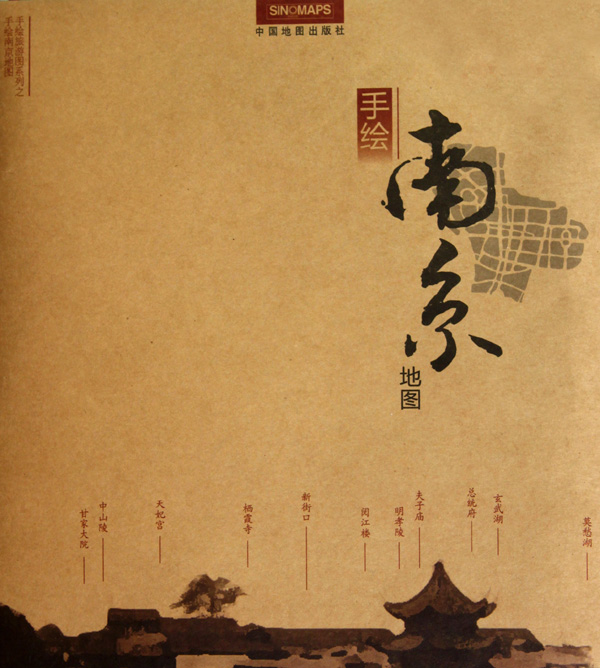 SINOMAPS
中国地图出版社
手绘旅游图系列之
手绘南京地图
手绘
南京
地图
甘家大院
中山陵
天妃宫
栖霞寺
新街口
阅江楼
明孝陵
夫子庙
总统府
玄武湖
莫愁湖